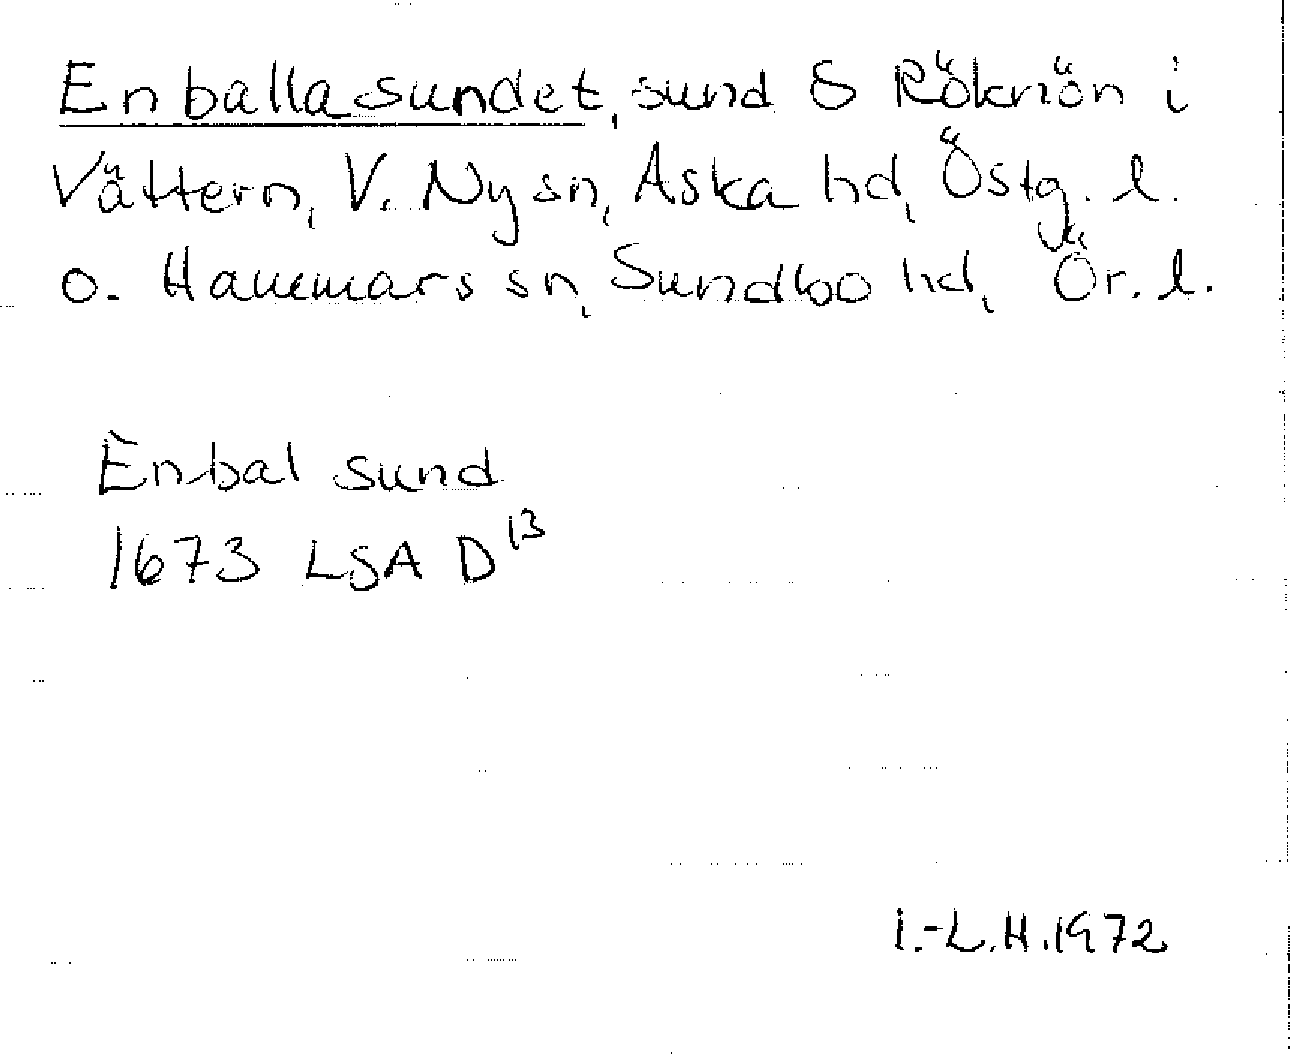 Enballasundet, sund S Röknön i
Vättern, V. Ny sn, Aska hd, Östg. l.
o. Hammars sn, Sundbo hd, Ör. l.
Enbal sund
1673 LSA D¹³
I.-L.H.1972